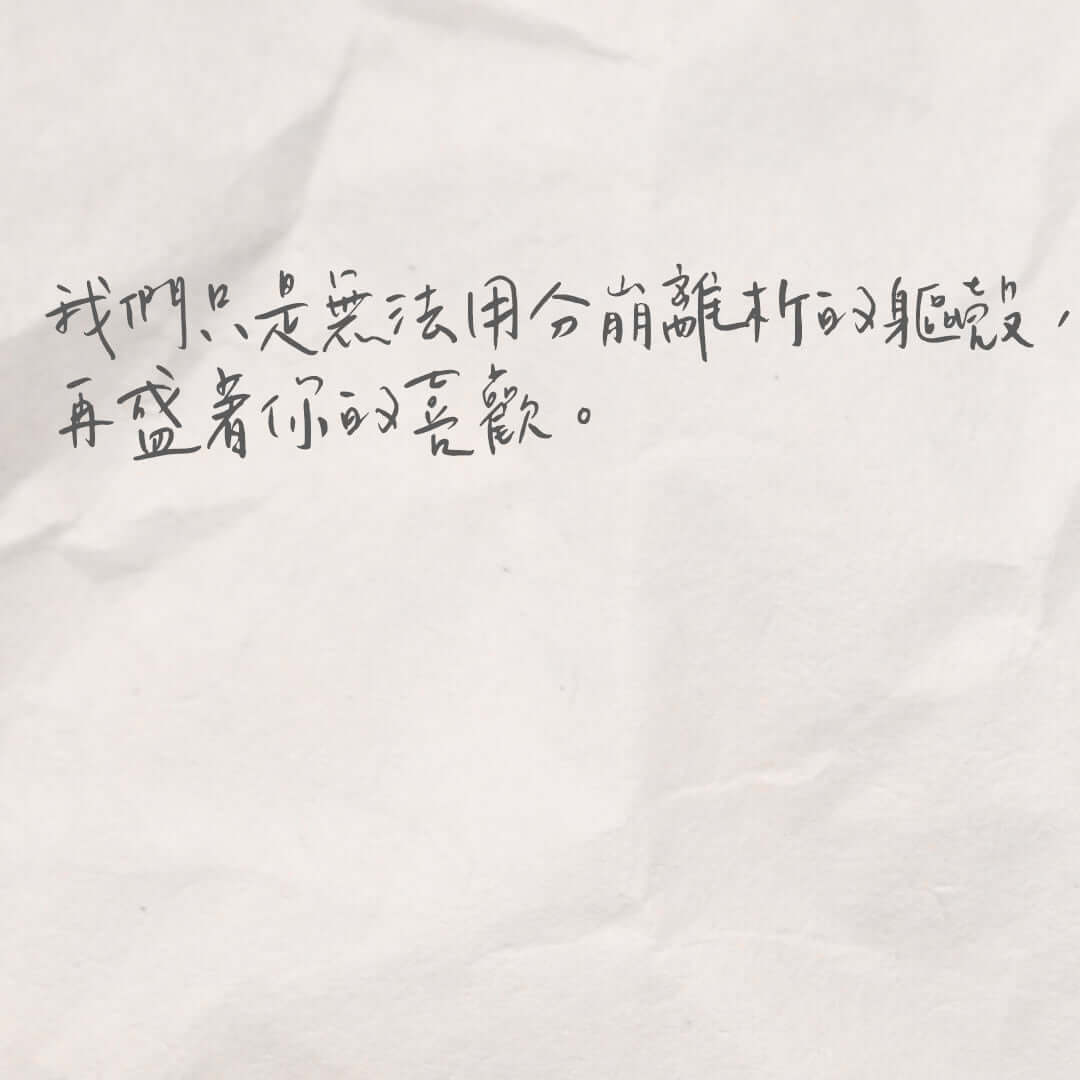 我們只是無法用分崩離析的軀殼，
再盛著你的喜歡。